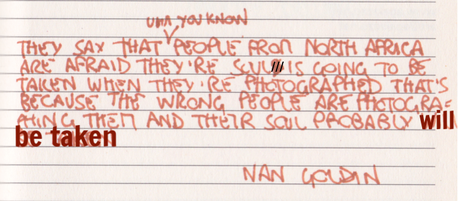 UHM, YOU KNOW
THEY SAY THAT PEOPLE FROM NORTH AFRICA
ARE AFRAID THEY'RE SOUL IS GOING TO BE
TAKEN WHEN THEY'RE PHOTOGRAPHED THAT'S
BECAUSE THE WRONG PEOPLE ARE PHOTOGRA-
PHING THEM AND THEIR SOUL PROBABLY will
be taken
NAN GOLDIN